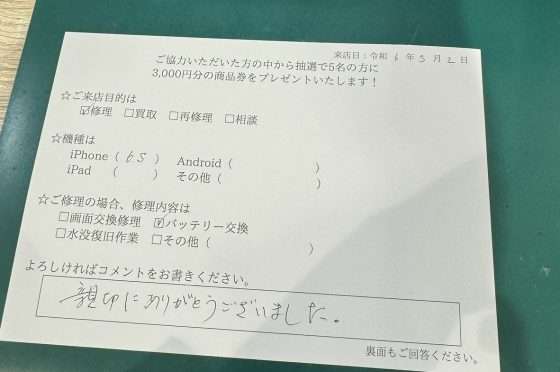 来店日:令和 6 年 5 月 2 日
ご協力いただいた方の中から抽選で5名の方に
3,000円分の商品券をプレゼントいたします!
☆ご来店目的は
☑修理 □買取 □再修理 □相談
☆機種は
iPhone( 6S ) Android( )
iPad ( ) その他( )
☆ご修理の場合、修理内容は
□画面交換修理 ☑バッテリー交換
□水没復旧作業 □その他( )
よろしければコメントをお書きください。
親切にありがとうございました。
裏面もご回答ください。